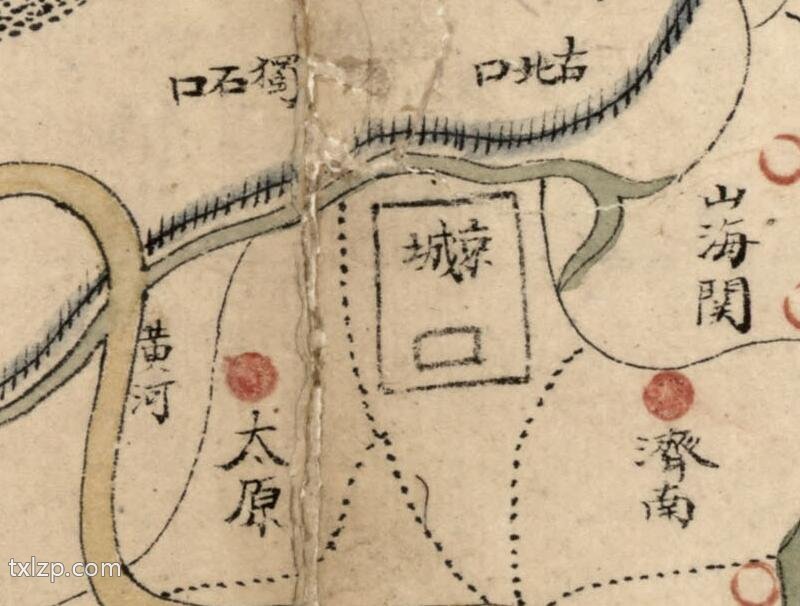 獨石口
古北口
山海関
京城
黃河
太原
濟南
txlzp.com